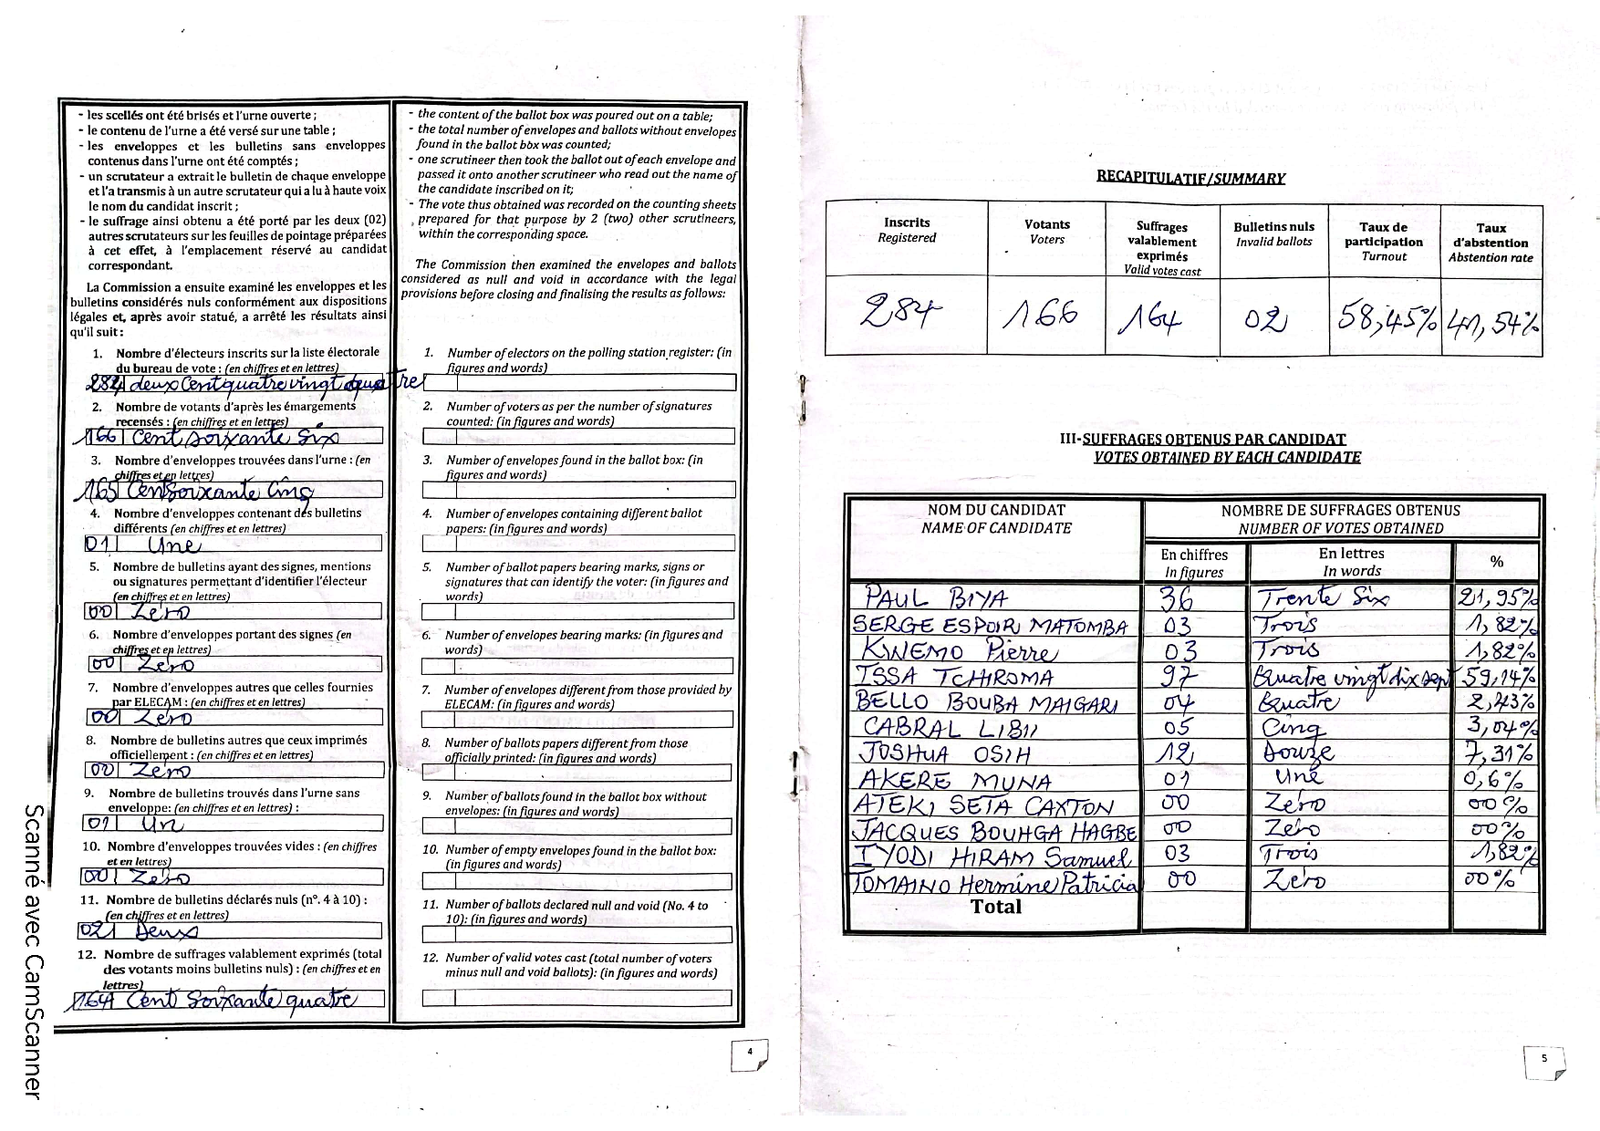 - les scellés ont été brisés et l'urne ouverte ;
- le contenu de l'urne a été versé sur une table ;
- les enveloppes et les bulletins sans enveloppes
contenus dans l'urne ont été comptés ;
- un scrutateur a extrait le bulletin de chaque enveloppe
et l'a transmis à un autre scrutateur qui a lu à haute voix
le nom du candidat inscrit ;
- le suffrage ainsi obtenu a été porté par les deux (02)
autres scrutateurs sur les feuilles de pointage préparées
à cet effet, à l'emplacement réservé au candidat
correspondant.
La Commission a ensuite examiné les enveloppes et les
bulletins considérés nuls conformément aux dispositions
légales et, après avoir statué, a arrêté les résultats ainsi
qu'il suit :
1. Nombre d'électeurs inscrits sur la liste électorale
du bureau de vote : (en chiffres et en lettres)
284 deux Cent quatre vingt quatre
2. Nombre de votants d'après les émargements
recensés : (en chiffres et en lettres)
166 Cent soixante Six
3. Nombre d'enveloppes trouvées dans l'urne : (en
chiffres et en lettres)
165 Cent Soixante Cinq
4. Nombre d'enveloppes contenant des bulletins
différents (en chiffres et en lettres)
01 Une
5. Nombre de bulletins ayant des signes, mentions
ou signatures permettant d'identifier l'électeur
(en chiffres et en lettres)
00 Zéro
6. Nombre d'enveloppes portant des signes (en
chiffres et en lettres)
00 Zéro
7. Nombre d'enveloppes autres que celles fournies
par ELECAM : (en chiffres et en lettres)
00 Zéro
8. Nombre de bulletins autres que ceux imprimés
officiellement : (en chiffres et en lettres)
00 Zéro
9. Nombre de bulletins trouvés dans l'urne sans
enveloppe: (en chiffres et en lettres) :
01 Un
10. Nombre d'enveloppes trouvées vides : (en chiffres
et en lettres)
00 Zéro
11. Nombre de bulletins déclarés nuls (n°. 4 à 10) :
(en chiffres et en lettres)
02 Deux
12. Nombre de suffrages valablement exprimés (total
des votants moins bulletins nuls) : (en chiffres et en
lettres)
164 Cent Soixante quatre
- the content of the ballot box was poured out on a table;
- the total number of envelopes and ballots without envelopes
found in the ballot box was counted;
- one scrutineer then took the ballot out of each envelope and
passed it onto another scrutineer who read out the name of
the candidate inscribed on it;
- The vote thus obtained was recorded on the counting sheets
prepared for that purpose by 2 (two) other scrutineers,
within the corresponding space.
The Commission then examined the envelopes and ballots
considered as null and void in accordance with the legal
provisions before closing and finalising the results as follows:
1. Number of electors on the polling station register: (in
figures and words)
2. Number of voters as per the number of signatures
counted: (in figures and words)
3. Number of envelopes found in the ballot box: (in
figures and words)
4. Number of envelopes containing different ballot
papers: (in figures and words)
5. Number of ballot papers bearing marks, signs or
signatures that can identify the voter: (in figures and
words)
6. Number of envelopes bearing marks: (in figures and
words)
7. Number of envelopes different from those provided by
ELECAM: (in figures and words)
8. Number of ballots papers different from those
officially printed: (in figures and words)
9. Number of ballots found in the ballot box without
envelopes: (in figures and words)
10. Number of empty envelopes found in the ballot box:
(in figures and words)
11. Number of ballots declared null and void (No. 4 to
10): (in figures and words)
12. Number of valid votes cast (total number of voters
minus null and void ballots): (in figures and words)
4
Scanné avec CamScanner
RECAPITULATIF/SUMMARY
Inscrits Registered
Votants Voters
Suffrages valablement exprimés Valid votes cast
Bulletins nuls Invalid ballots
Taux de participation Turnout
Taux d'abstention Abstention rate
284 166 164 02 58,45% 41,54%
III-SUFFRAGES OBTENUS PAR CANDIDAT
VOTES OBTAINED BY EACH CANDIDATE
NOM DU CANDIDAT NOMBRE DE SUFFRAGES OBTENUS
NAME OF CANDIDATE NUMBER OF VOTES OBTAINED
En chiffres En lettres %
In figures In words
PAUL BIYA 36 Trente Six 21,95%
SERGE ESPOIR MATOMBA 03 Trois 1,82%
KWEMO Pierre 03 Trois 1,82%
ISSA TCHIROMA 97 Quatre vingt dix sept 59,14%
BELLO BOUBA MAIGARI 04 Quatre 2,43%
CABRAL LIBII 05 Cinq 3,04%
JOSHUA OSIH 12 Douze 7,31%
AKERE MUNA 01 Une 0,6%
ATEKI SETA CAXTON 00 Zéro 00%
JACQUES BOUHGA HAGBE 00 Zéro 00%
IYODI HIRAM Samuel 03 Trois 1,82%
TOMAINO Hermine Patricia 00 Zéro 00%
Total
5